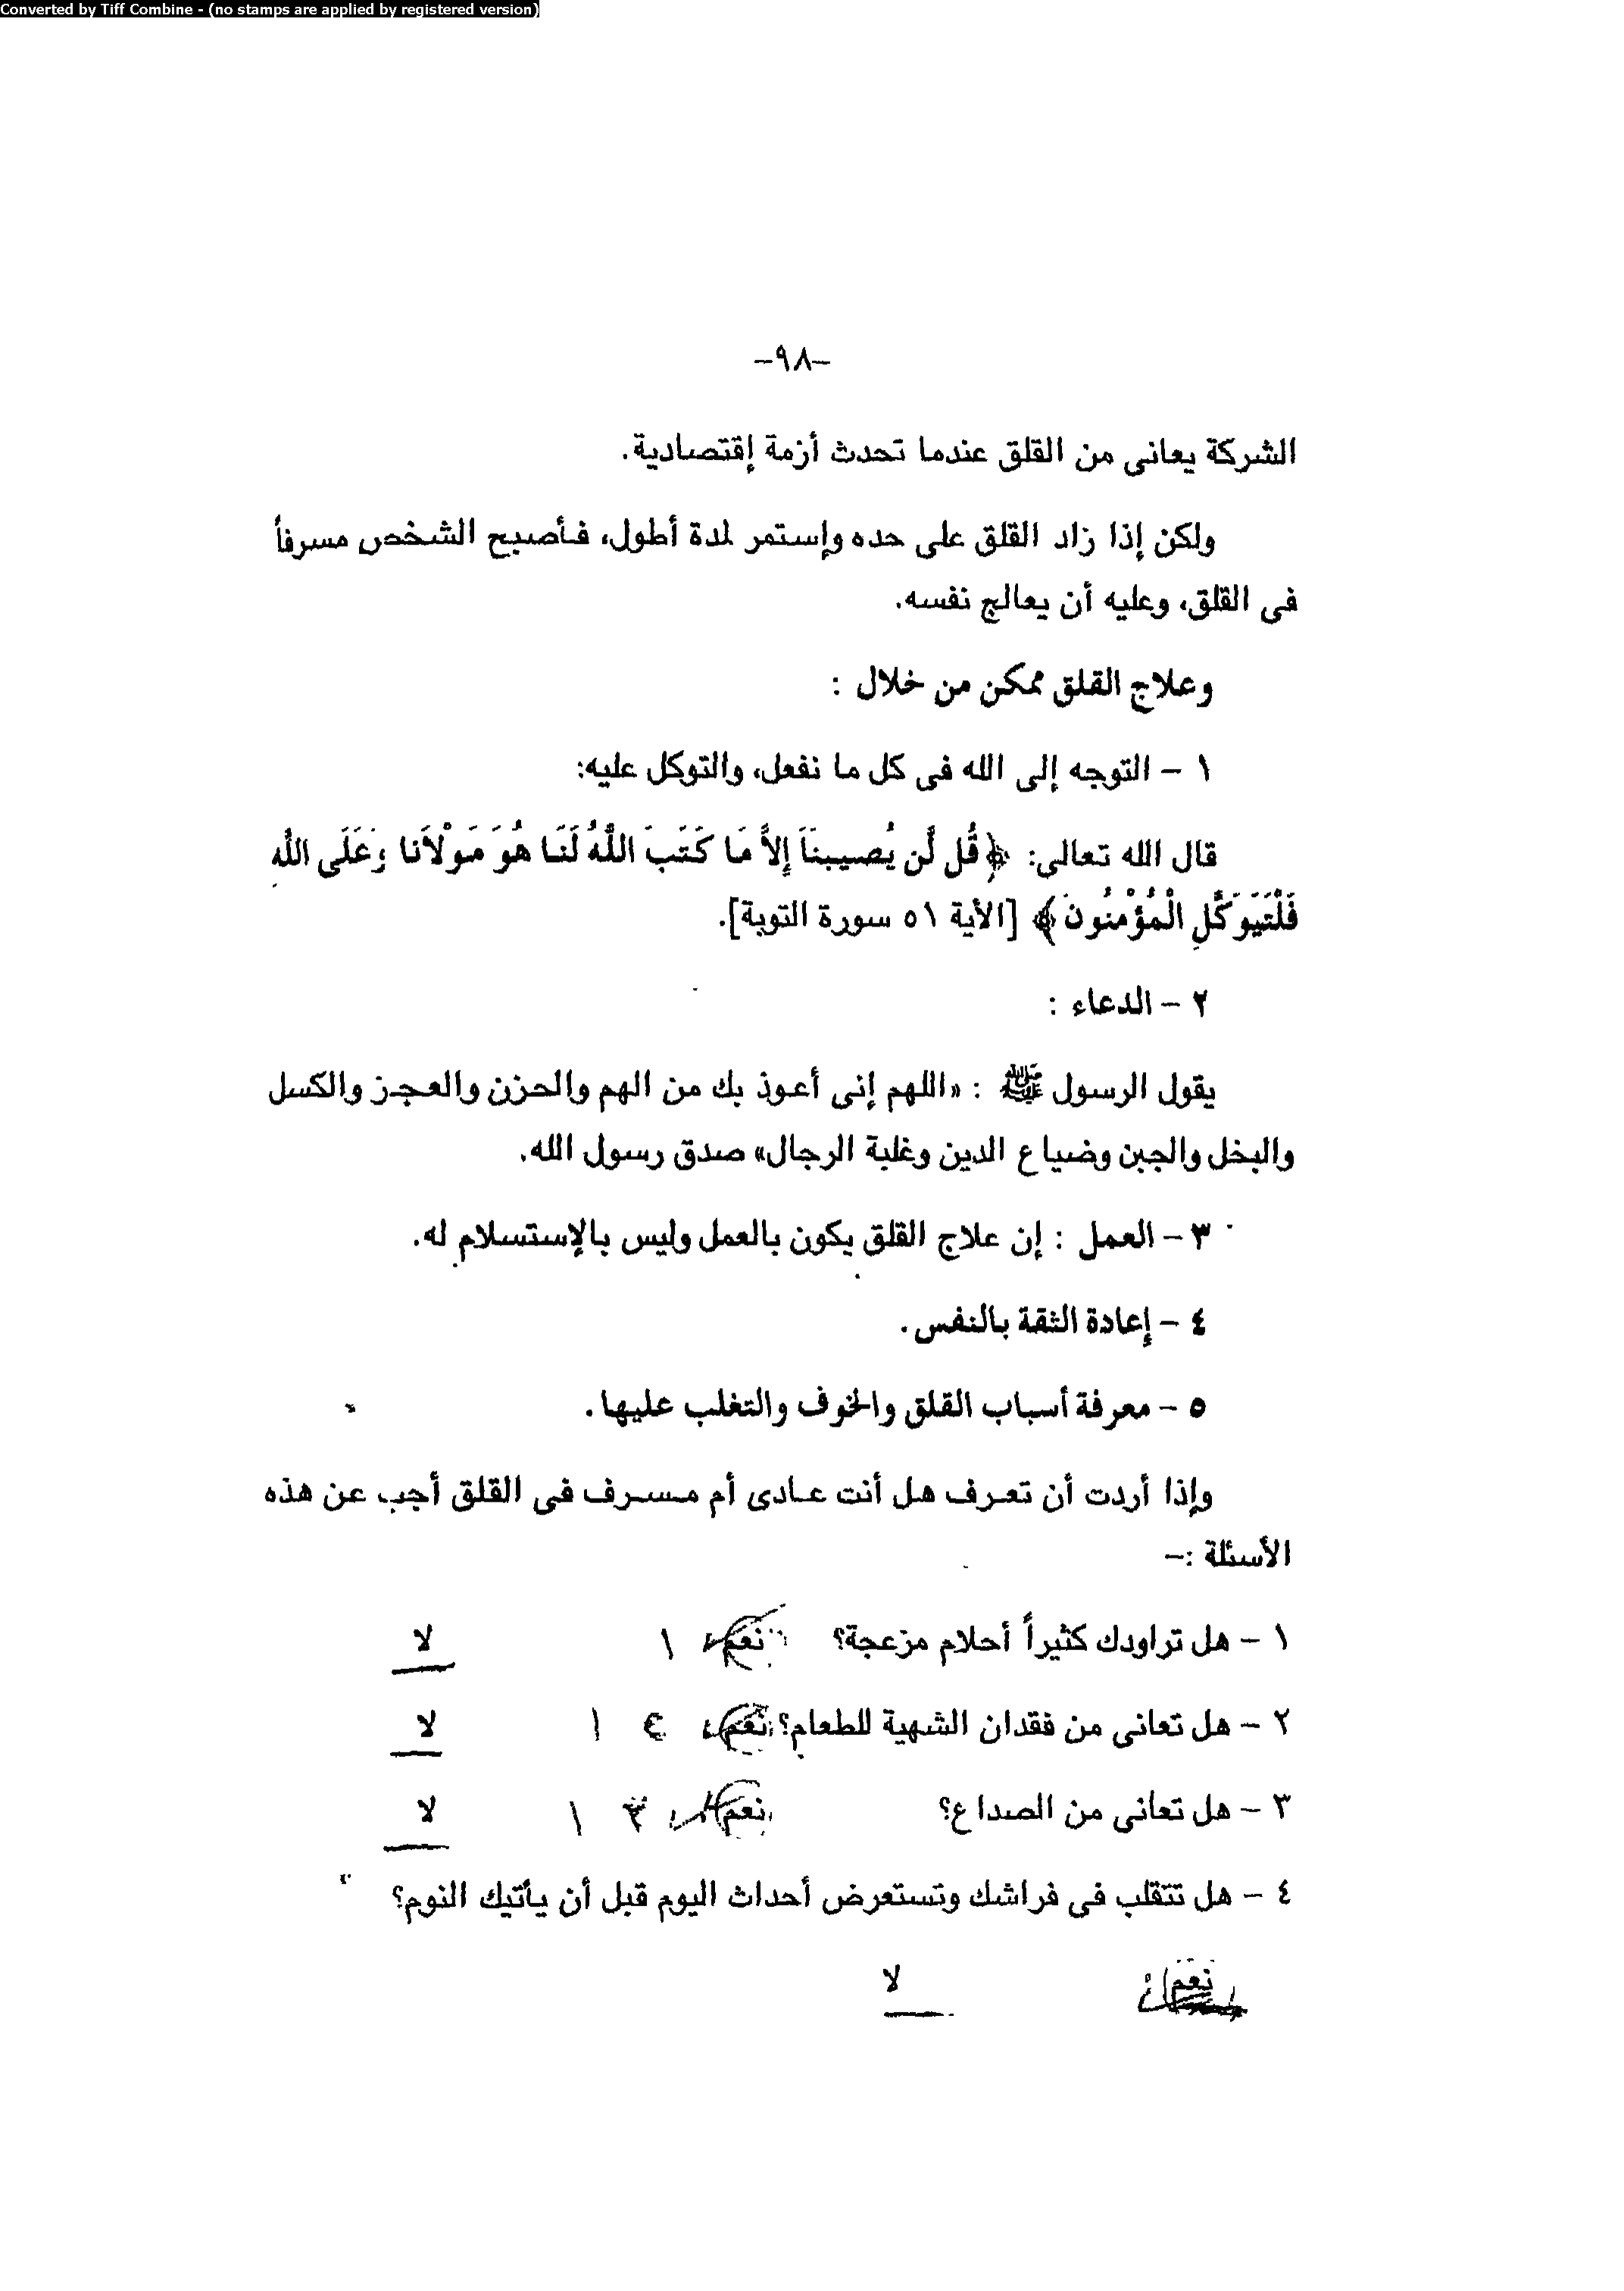 Converted by Tiff Combine - (no stamps are applied by registered version)
-٩٨-
الشركة يعانى من القلق عندما تحدث أزمة إقتصادية.
ولكن إذا زاد القلق على حده وإستمر لمدة أطول، فأصبح الشخص مسرفاً
فى القلق، وعليه أن يعالج نفسه.
وعلاج القلق ممكن من خلال :
١ - التوجه إلى الله فى كل ما نفعل، والتوكل عليه:
قال الله تعالى: ﴿قُل لَّن يُصيبنَاَ إلاَّ مَا كَتَبَ اللَّهُ لَنَا هُوَ مَوْلاَنا وَعَلَى اللَّه
فَلْتَيَوَكَّلِ الْمُؤْمنُونَ﴾ [الأية ٥١ سورة التوبة].
٢ - الدعاء :
يقول الرسول ﷺ : «اللهم إنى أعوذ بك من الهم والحزن والعجز والكسل
والبخل والجبن وضياع الدين وغلبة الرجال» صدق رسول الله.
٣ - العمل : إن علاج القلق يكون بالعمل وليس بالإستسلام له.
٤ - إعادة الثقة بالنفس.
٥ - معرفة أسباب القلق والخوف والتغلب عليها.
وإذا أردت أن تعرف هل أنت عادى أم مسرف فى القلق أجب عن هذه
الأسئلة :-
١ - هل تراودك كثيراً أحلام مزعجة؟ نعم ١ لا
٢ - هل تعانى من فقدان الشهية للطعام؟ نعم ١ لا
٣ - هل تعانى من الصداع؟ نعم ٣ ١ لا
٤ - هل تتقلب فى فراشك وتستعرض أحداث اليوم قبل أن يأتيك النوم؟
نعم لا